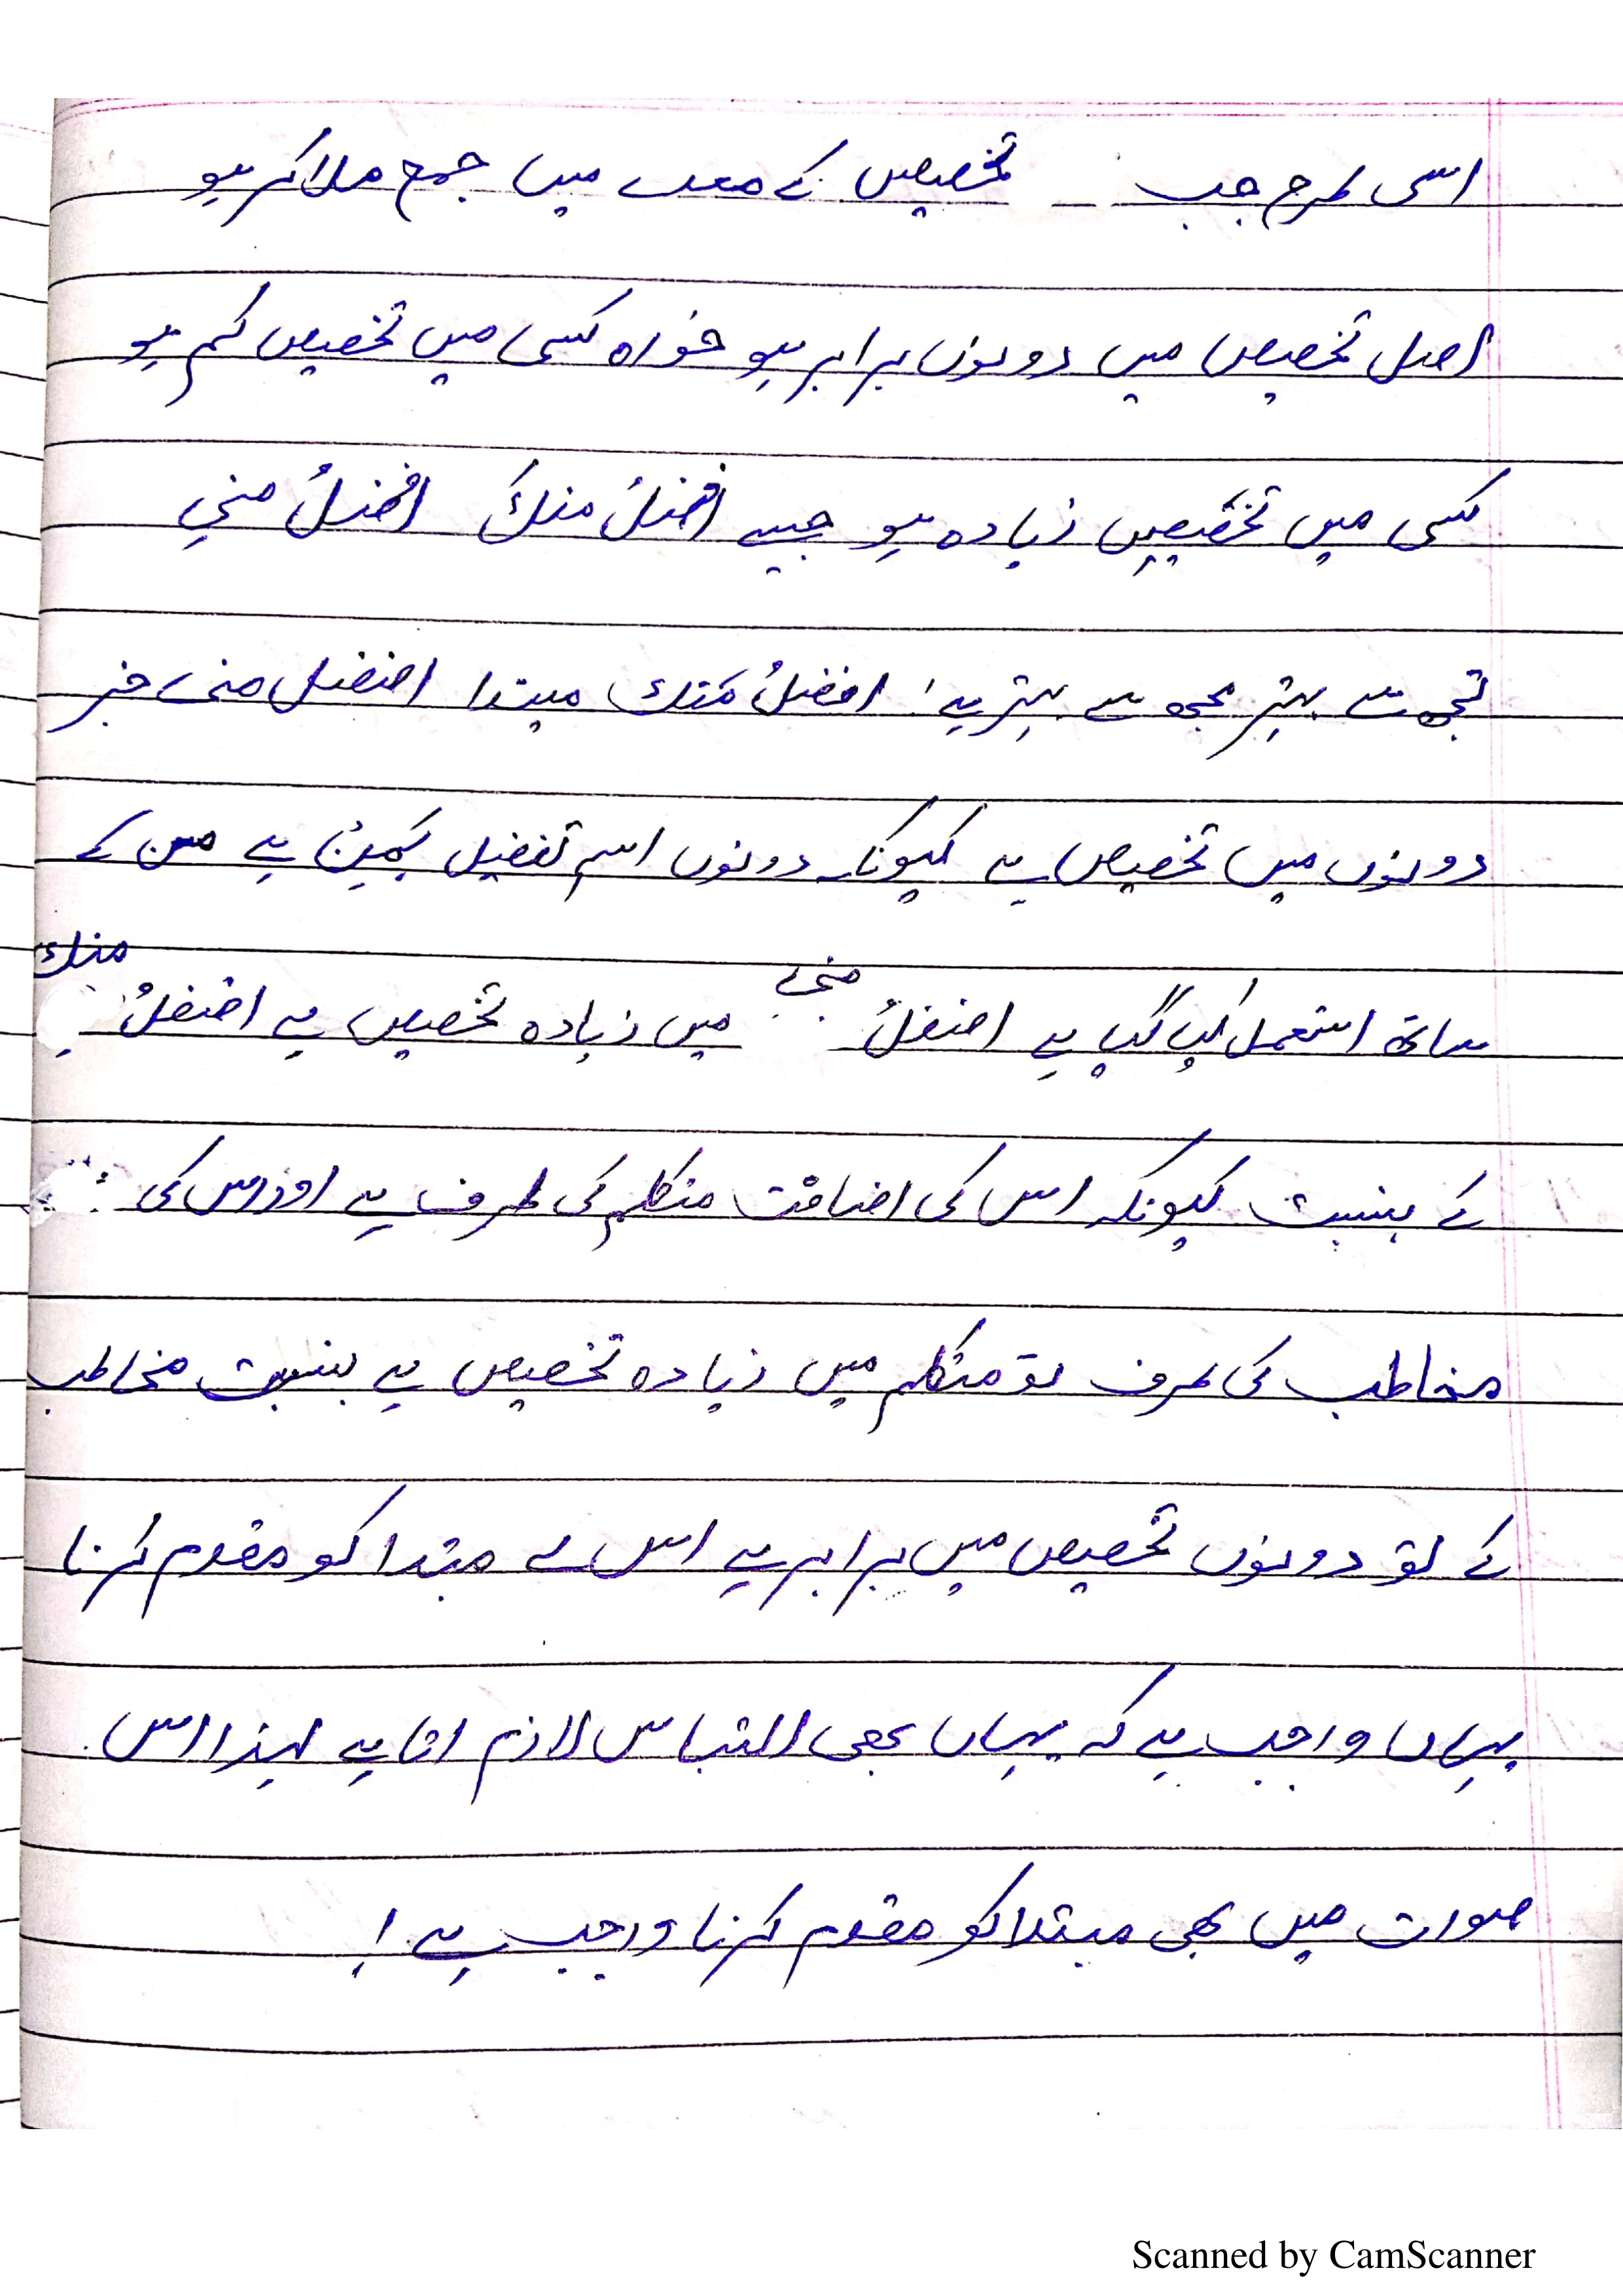 اسی طرح جب تخصیص کے معنے میں جمع ملا کر ہو
اصل تخصیص میں دونوں برابر ہو خواہ کسی میں تخصیص کم ہو
کسی میں تخصیص زیادہ ہو جیسے افضلُ منكَ افضلُ مني
تجھ سے بہتر مجھ سے بہتر ہے! افضلُ منك مبتدا افضل منی خبر
دونوں میں تخصیص ہے کیونکہ دونوں اسم تفضیل ہے من کے
ساتھ استعمل کیا گیا ہے افضلُ منی میں زیادہ تخصیص ہے افضلُ منك
کے بنسبت کیونکہ اس کی اضافت متکلم کی طرف ہے اور اس کی
مخاطب کی طرف تو متکلم میں زیادہ تخصیص ہے بنسبت مخاطب
کے تو دونوں تخصیص میں برابر ہے اس لے مبتدا کو مقدم کرنا
یہاں واجب ہے کہ یہاں بھی التباس لازم اتا ہے لہذا اس
صورت میں بھی مبتدا کو مقدم کرنا واجب ہے!
Scanned by CamScanner